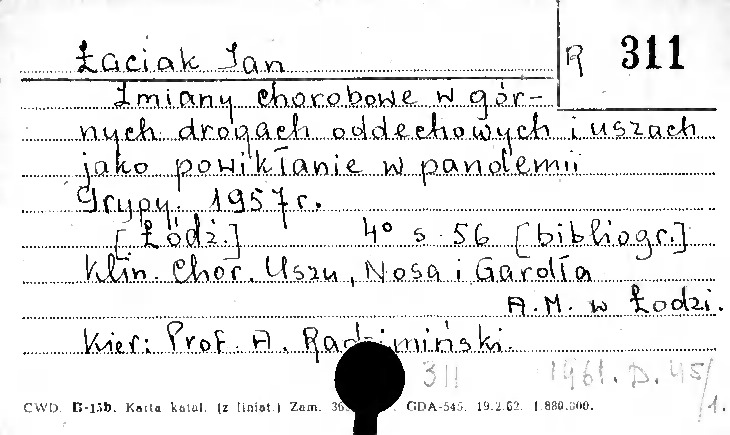 Łaciak Jan
R 311
Zmiany chorobowe w gór-
nych drogach oddechowych i uszach
jako powikłanie w pandemii
Grypy. 1957r.
[Łódź.] 4° s. 56 [bibliogr.]
Klin. Chor. Uszu, Nosa i Gardła
A.M. w Łodzi.
Kier: Prof. A. Radzimiński.
311 1961. D. 45/1.
CWD. B-15b. Karta katal. (z liniat.) Zam. GDA-545. 19.2.62. 1.880.000.